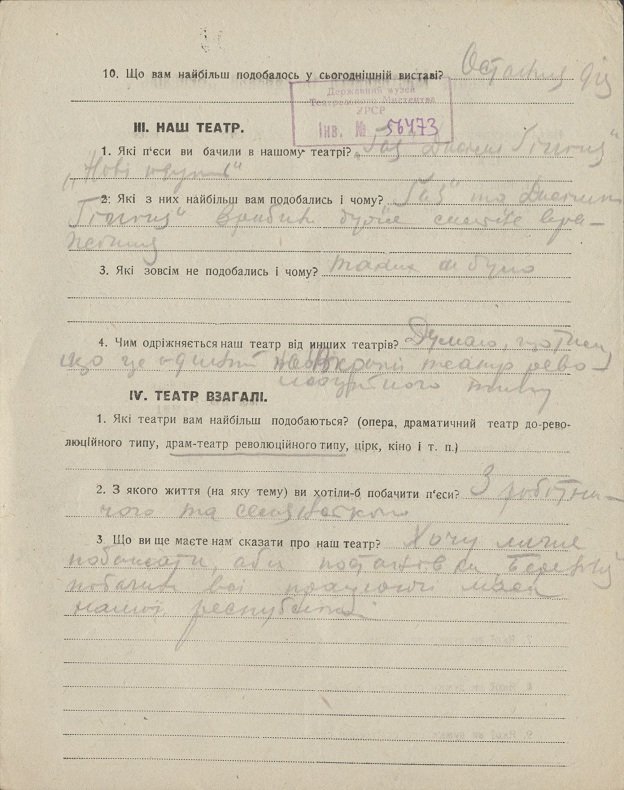 10. Що вам найбільш подобалось у сьогоднішній виставі? Остання дія
Державний музей
Театрального Мистецтва
УРСР
Інв. № 56473
III. НАШ ТЕАТР.
1. Які п'єси ви бачили в нашому театрі? „Газ" Джіммі Гіггінз"
„Нові идуть"
2. Які з них найбільш вам подобались і чому? „Газ" та Джіммі
Гіггінз"
3. Які зовсім не подобались і чому? таких не було
4. Чим одріжняється наш театр від инших театрів? Думаю,
що це театр рево-
люційного типу
IV. ТЕАТР ВЗАГАЛІ.
1. Які театри вам найбільш подобаються? (опера, драматичний театр до-рево-
люційного типу, драм-театр революційного типу, цірк, кіно і т. п.)
2. З якого життя (на яку тему) ви хотіли-б побачити п'єси? З робітни-
чого та селянського
3. Що ви ще маєте нам сказати про наш театр? Хочу лише
побажати, аби постановки „Березіль"
побачили всі працюючі маси
нашої республіки